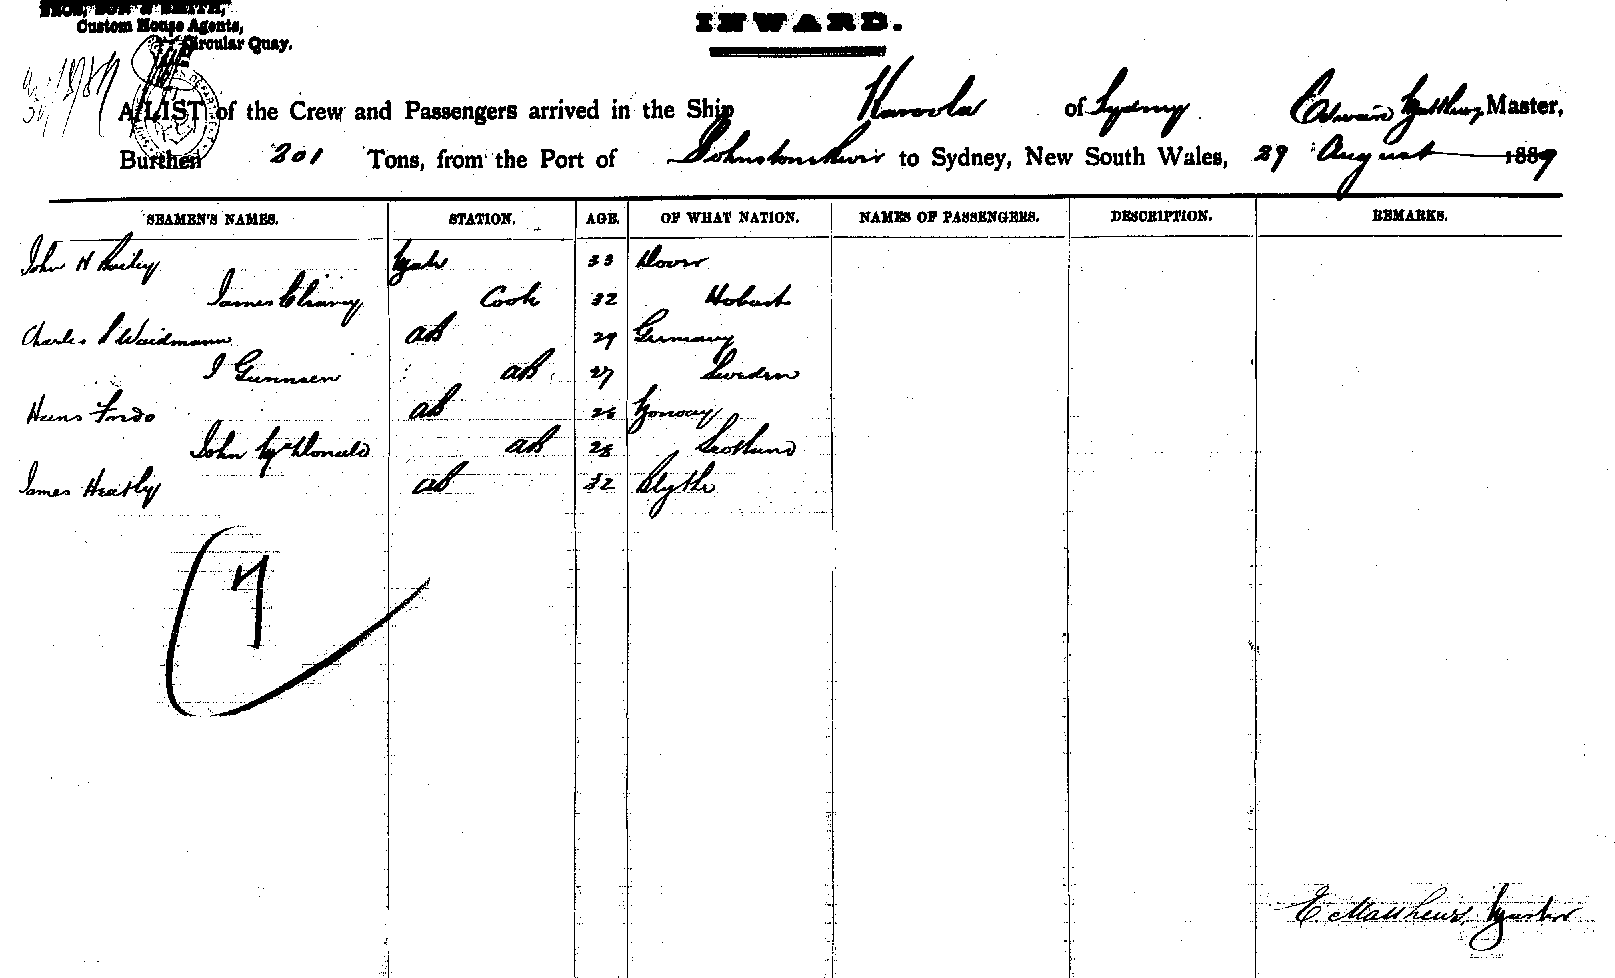 Custom House Agents,
Circular Quay.
INWARD.
A LIST of the Crew and Passengers arrived in the Ship Karoola of Sydney Edwin Matthews Master,
Burthen 201 Tons, from the Port of Johnstone River to Sydney, New South Wales, 29 August 1889
SEAMEN'S NAMES. STATION. AGE. OF WHAT NATION. NAMES OF PASSENGERS. DESCRIPTION. REMARKS.
John H Mate 33 Dover
James Cook 32 Hobart
Charles Waidmann AB 29 Germany
I Gunnsen AB 27 Sweden
Hans Fordo AB 26 Norway
John McDonald AB 28 Scotland
James Heatly AB 32 Blythe
7
E Matthews, Master